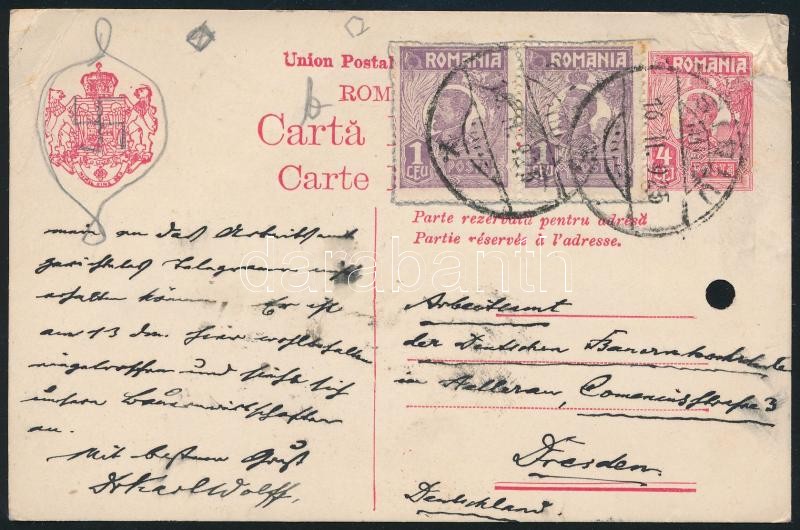 Union Postal
ROM
Cartă
Carte
ROMANIA
ROMANIA
ROMANIA
1 LEU POSTA
1 LEU POSTA
4
Parte rezervată pentru adresă
Partie réservée à l'adresse.
mein an das Arbeitsamt
gerichtetes Telegramm
erhalten können. Er ist
am 13 dm. hier wohlbehalten
eingetroffen und sieht sich
unsere Bauernwirtschaften
an.
Mit bestem Gruß
Dr Karl Wolff
Arbeitsamt
der Deutschen
in Hellerau, Comeniusstraße 3
Dresden
Deutschland
darabanth